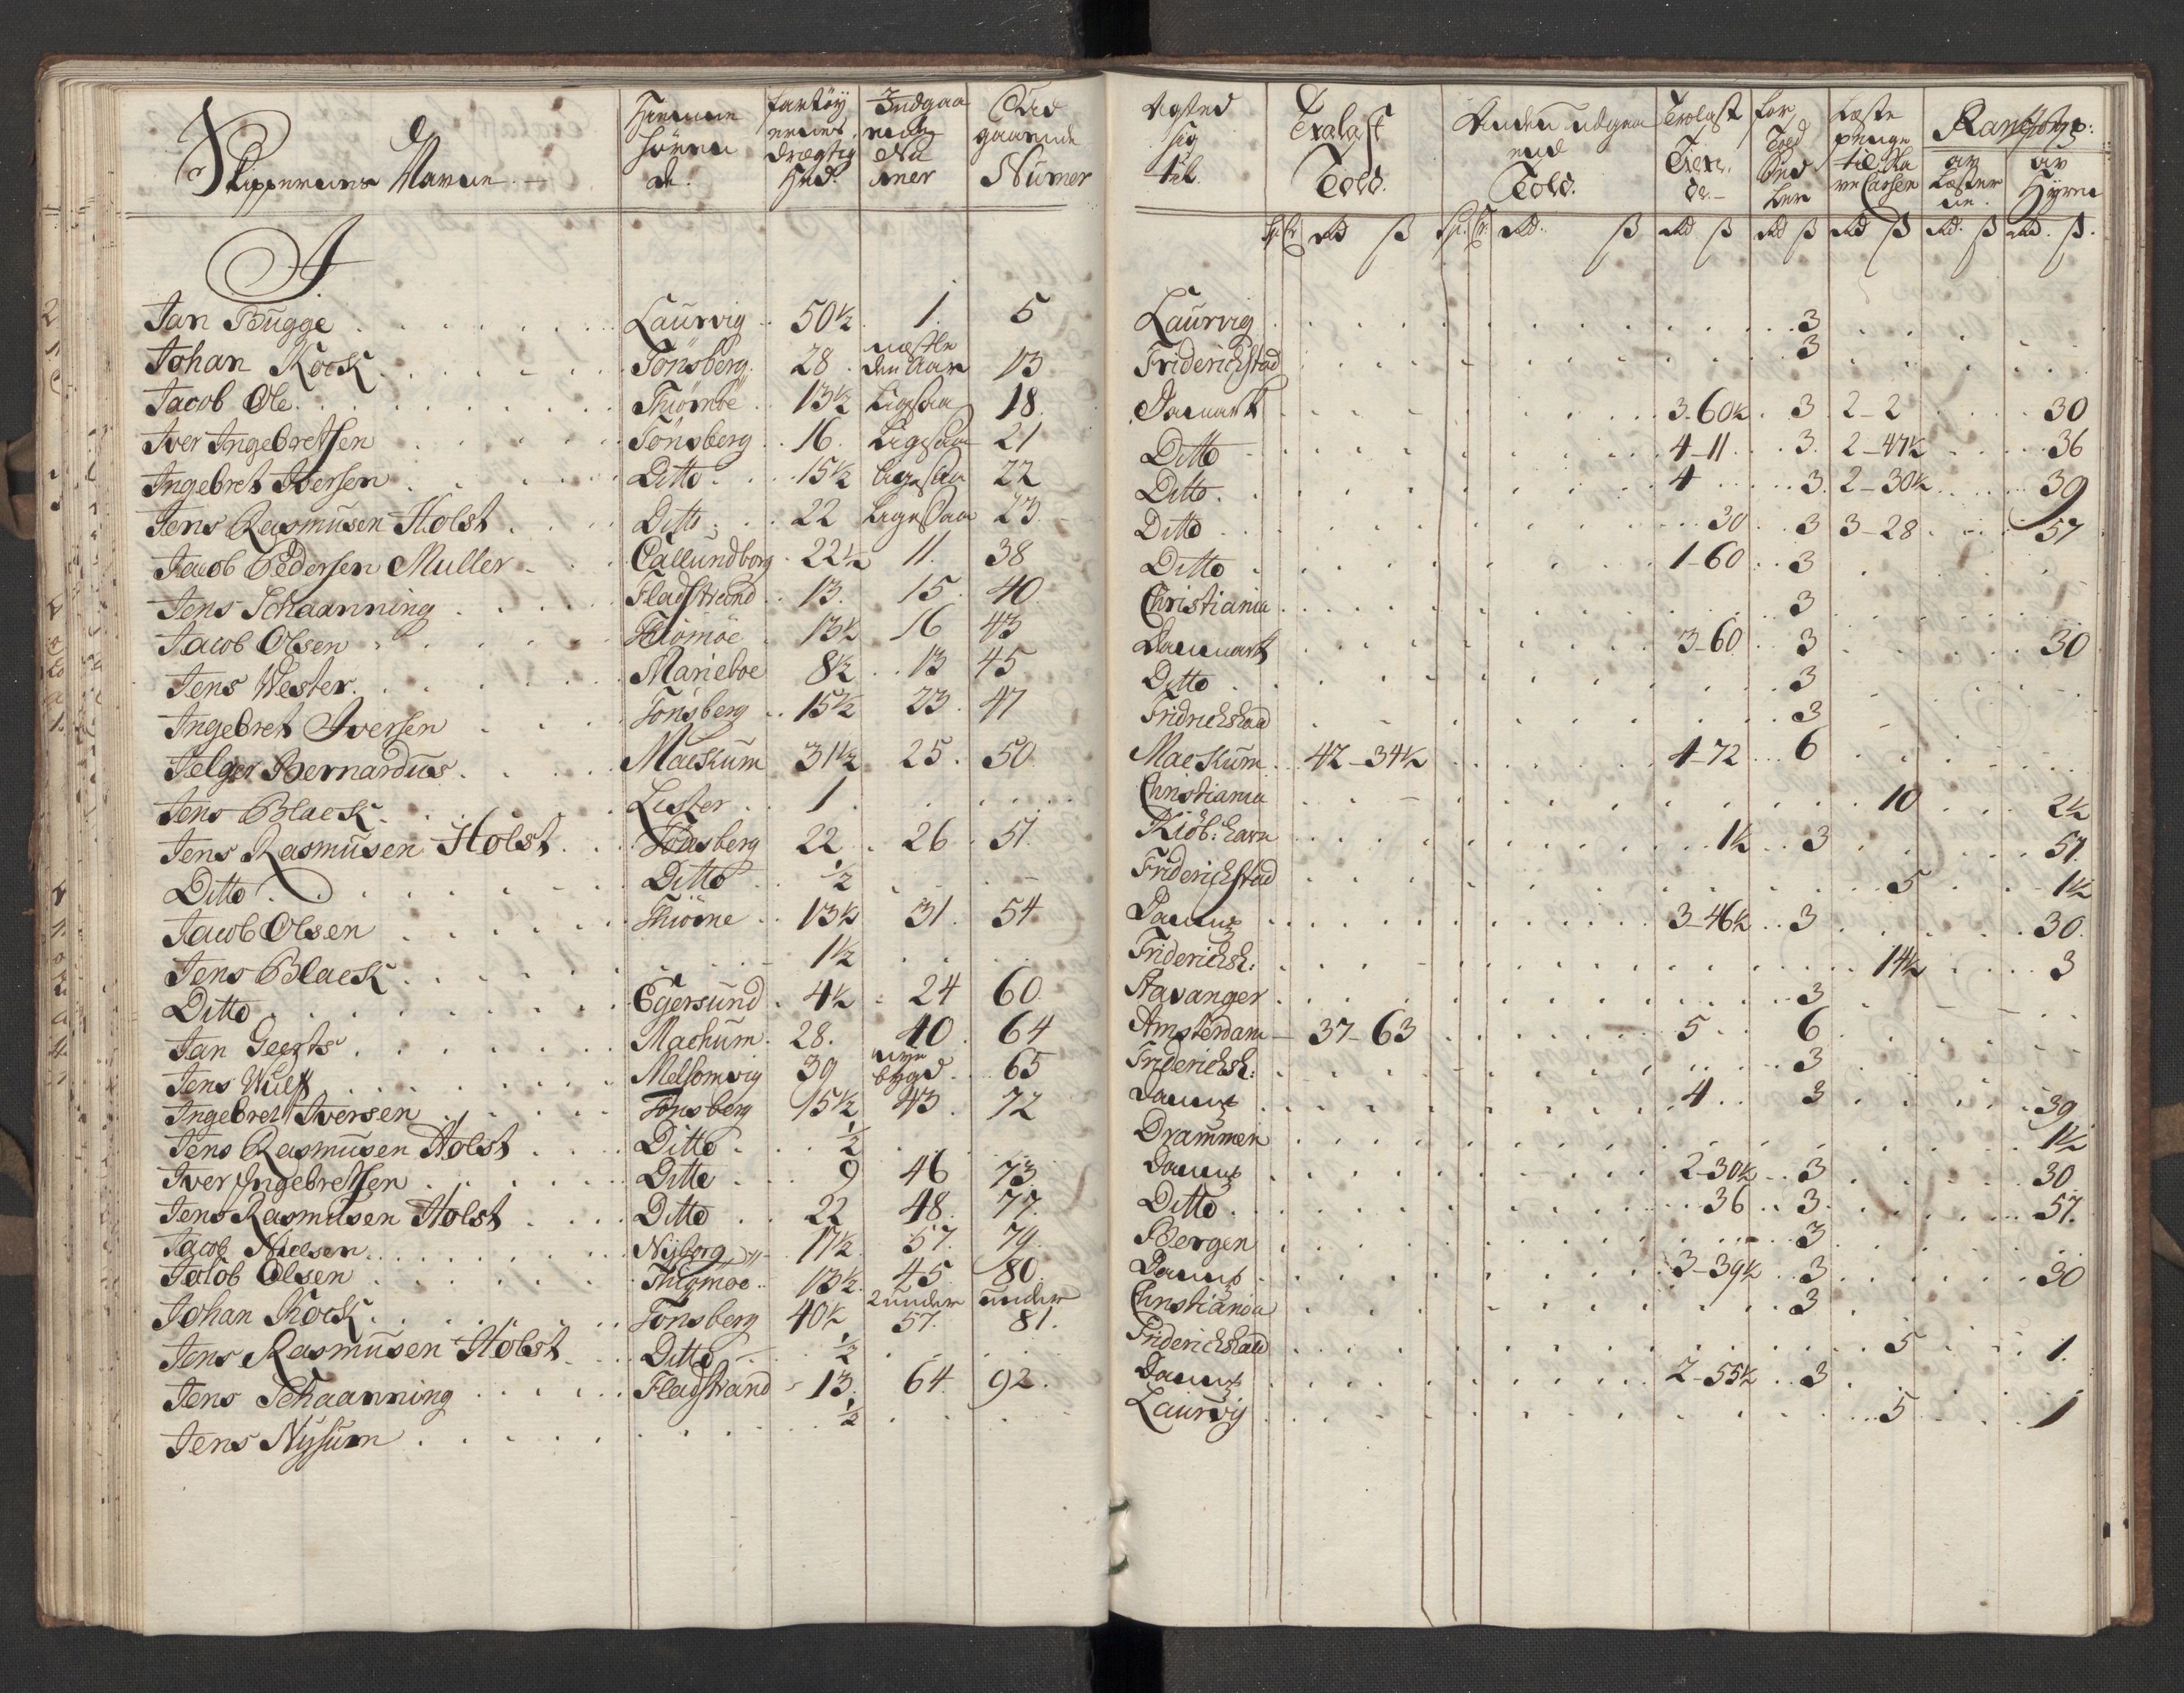 Skippernes Navne
Hiemme hörende
fartöyernes drægtighed
Indgaaende Numer
Udgaaende Numer
Agted sig til
Trælast Told
Anden udgaaende Told
Trælast Tiende
for Told Sedler
Læste penge til Havne Cassen
af Læsterne
af Hyren
rd ß rd ß rd ß rd ß rd ß rd ß rd ß
J
Jan Bugge Laurvig 50½ 1 5 Laurvig 3
Johan Kock Tönsberg 28 næstleden Aar 13 Friderichstad 3
Jacob Ole Thiömöe 13½ Ligesaa 18 Danmark 3-60½ 3 2-2 30
Iver Ingebretsen Tönsberg 16 Ligesaa 21 Ditto 4-11 3 2-47½ 36
Ingebret Iversen Ditto 15½ Ligesaa 22 Ditto 4 3 2-30½ 39
Jens Rasmusen Holst Ditto 22 Ligesaa 23 Ditto 30 3 3-28 57
Jacob Pedersen Muller Callundborg 22½ 11 38 Ditto 1-60 3
Jens Schaanning Fladstrand 13 15 40 Christiania 3
Jacob Olsen Thiömöe 13½ 16 43 Danmark 3-60 3 30
Jens Wester Marieboe 8½ 13 45 Ditto 3
Ingebret Iversen Tönsberg 15½ 23 47 Fridrichstad 3
Jelger Bernardus Mackum 31½ 25 50 Mackum 42-34½ 4-72 6
Jens Black Lister 1 Christiania 10 2½
Jens Rasmusen Holst Tönsberg 22 26 51 Kiöb:havn 1½ 3 57
Ditto Ditto ½ Friderichstad 5 1½
Jacob Olsen Thiöme 13½ 31 54 Danmk 3-46½ 3 30
Jens Black 1½ Friderichsh: 14½ 3
Ditto Egersund 4½ 24 60 Stavanger 3
Jan Geerts Machum 28 40 64 Amsterdam 37-63 5 6
Jens Wulf Melsomvig 39 nye bygd 65 Friderichsh: 3
Ingebret Iversen Tönsberg 15½ 43 72 Danmk 4 3 39
Jens Rasmusen Holst Ditto ½ Drammen 1½
Iver Ingebretsen Ditto 9 46 73 Danmk 2-30½ 3 30
Jens Rasmusen Holst Ditto 22 48 77 Ditto 36 3 57
Jacob Nielsen Nyborg 17½ 57 79 Bergen 3
Jacob Olsen Thiömöe 13½ 45 80 Danmk 3-39½ 3 30
Johan Kock Tönsberg 40½ under 57 under 81 Christiania 3
Jens Rasmusen Holst Ditto ½ Friderichstad 5 1
Jens Schaanning Fladstrand 13 64 92 Danmk 2-55½ 3
Jens Nysum ½ Laurvig 5 1